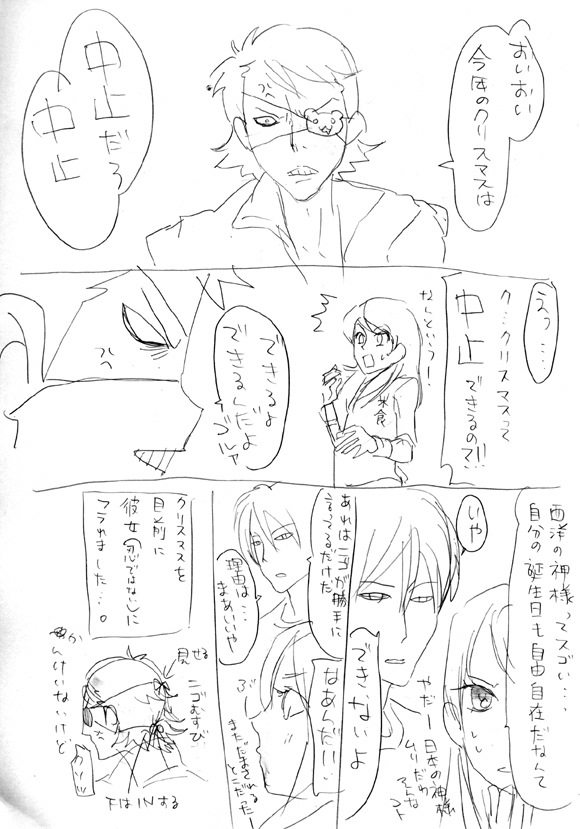 おいおい
今年のクリスマスは
中止だろ
中止
えっ…
ク…クリスマスって
中止できるので!!
なんという!
米食
できるよ
できるんだよ
ゴルァ
西洋の神様ってスゴい…
自分の誕生日も自由自在だなんて
やだー日本の神様
ムリだわ
そんなコト
いや
できないよ
あれはニゴが勝手に
言ってるだけだ
なあんだ!!
理由は…
まあいいや
ぶー
まただまされる
とこだったー
クリスマスを
目前に
彼女(忍ではない)に
フラれました…。
見せる
ニゴむすび
かんけいないけど
下はINする